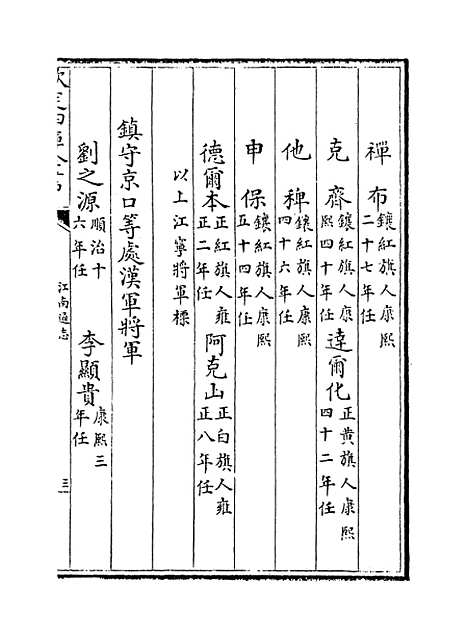 禪布鑲紅旗人康熙二十七年任
克齊鑲紅旗人康熙四十年任 達爾化正黃旗人康熙四十二年任
他稗鑲紅旗人康熙四十六年任
申保鑲紅旗人康熙五十四年任
德爾本正紅旗人雍正二年任 阿克山正白旗人雍正八年任
以上江寧將軍標
鎮守京口等處漢軍將軍
劉之源順治十六年任 李顯貴康熙三年任
欽定四庫全書
江南通志
三